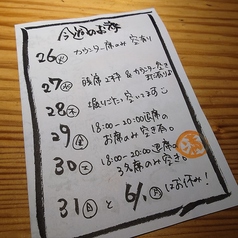 今週のお席
26㊋ カウンター席のみ空有り
27㊌ 座席 2名 & カウンター空き
28㊍ 堀りごたつ空いてます
29㊎ 18:00-20:00退席の
お席のみ空き有。
30㊏ 18:00-20:00退席の
3名席のみ空き。
31㊐と6/1㊊はお休み!